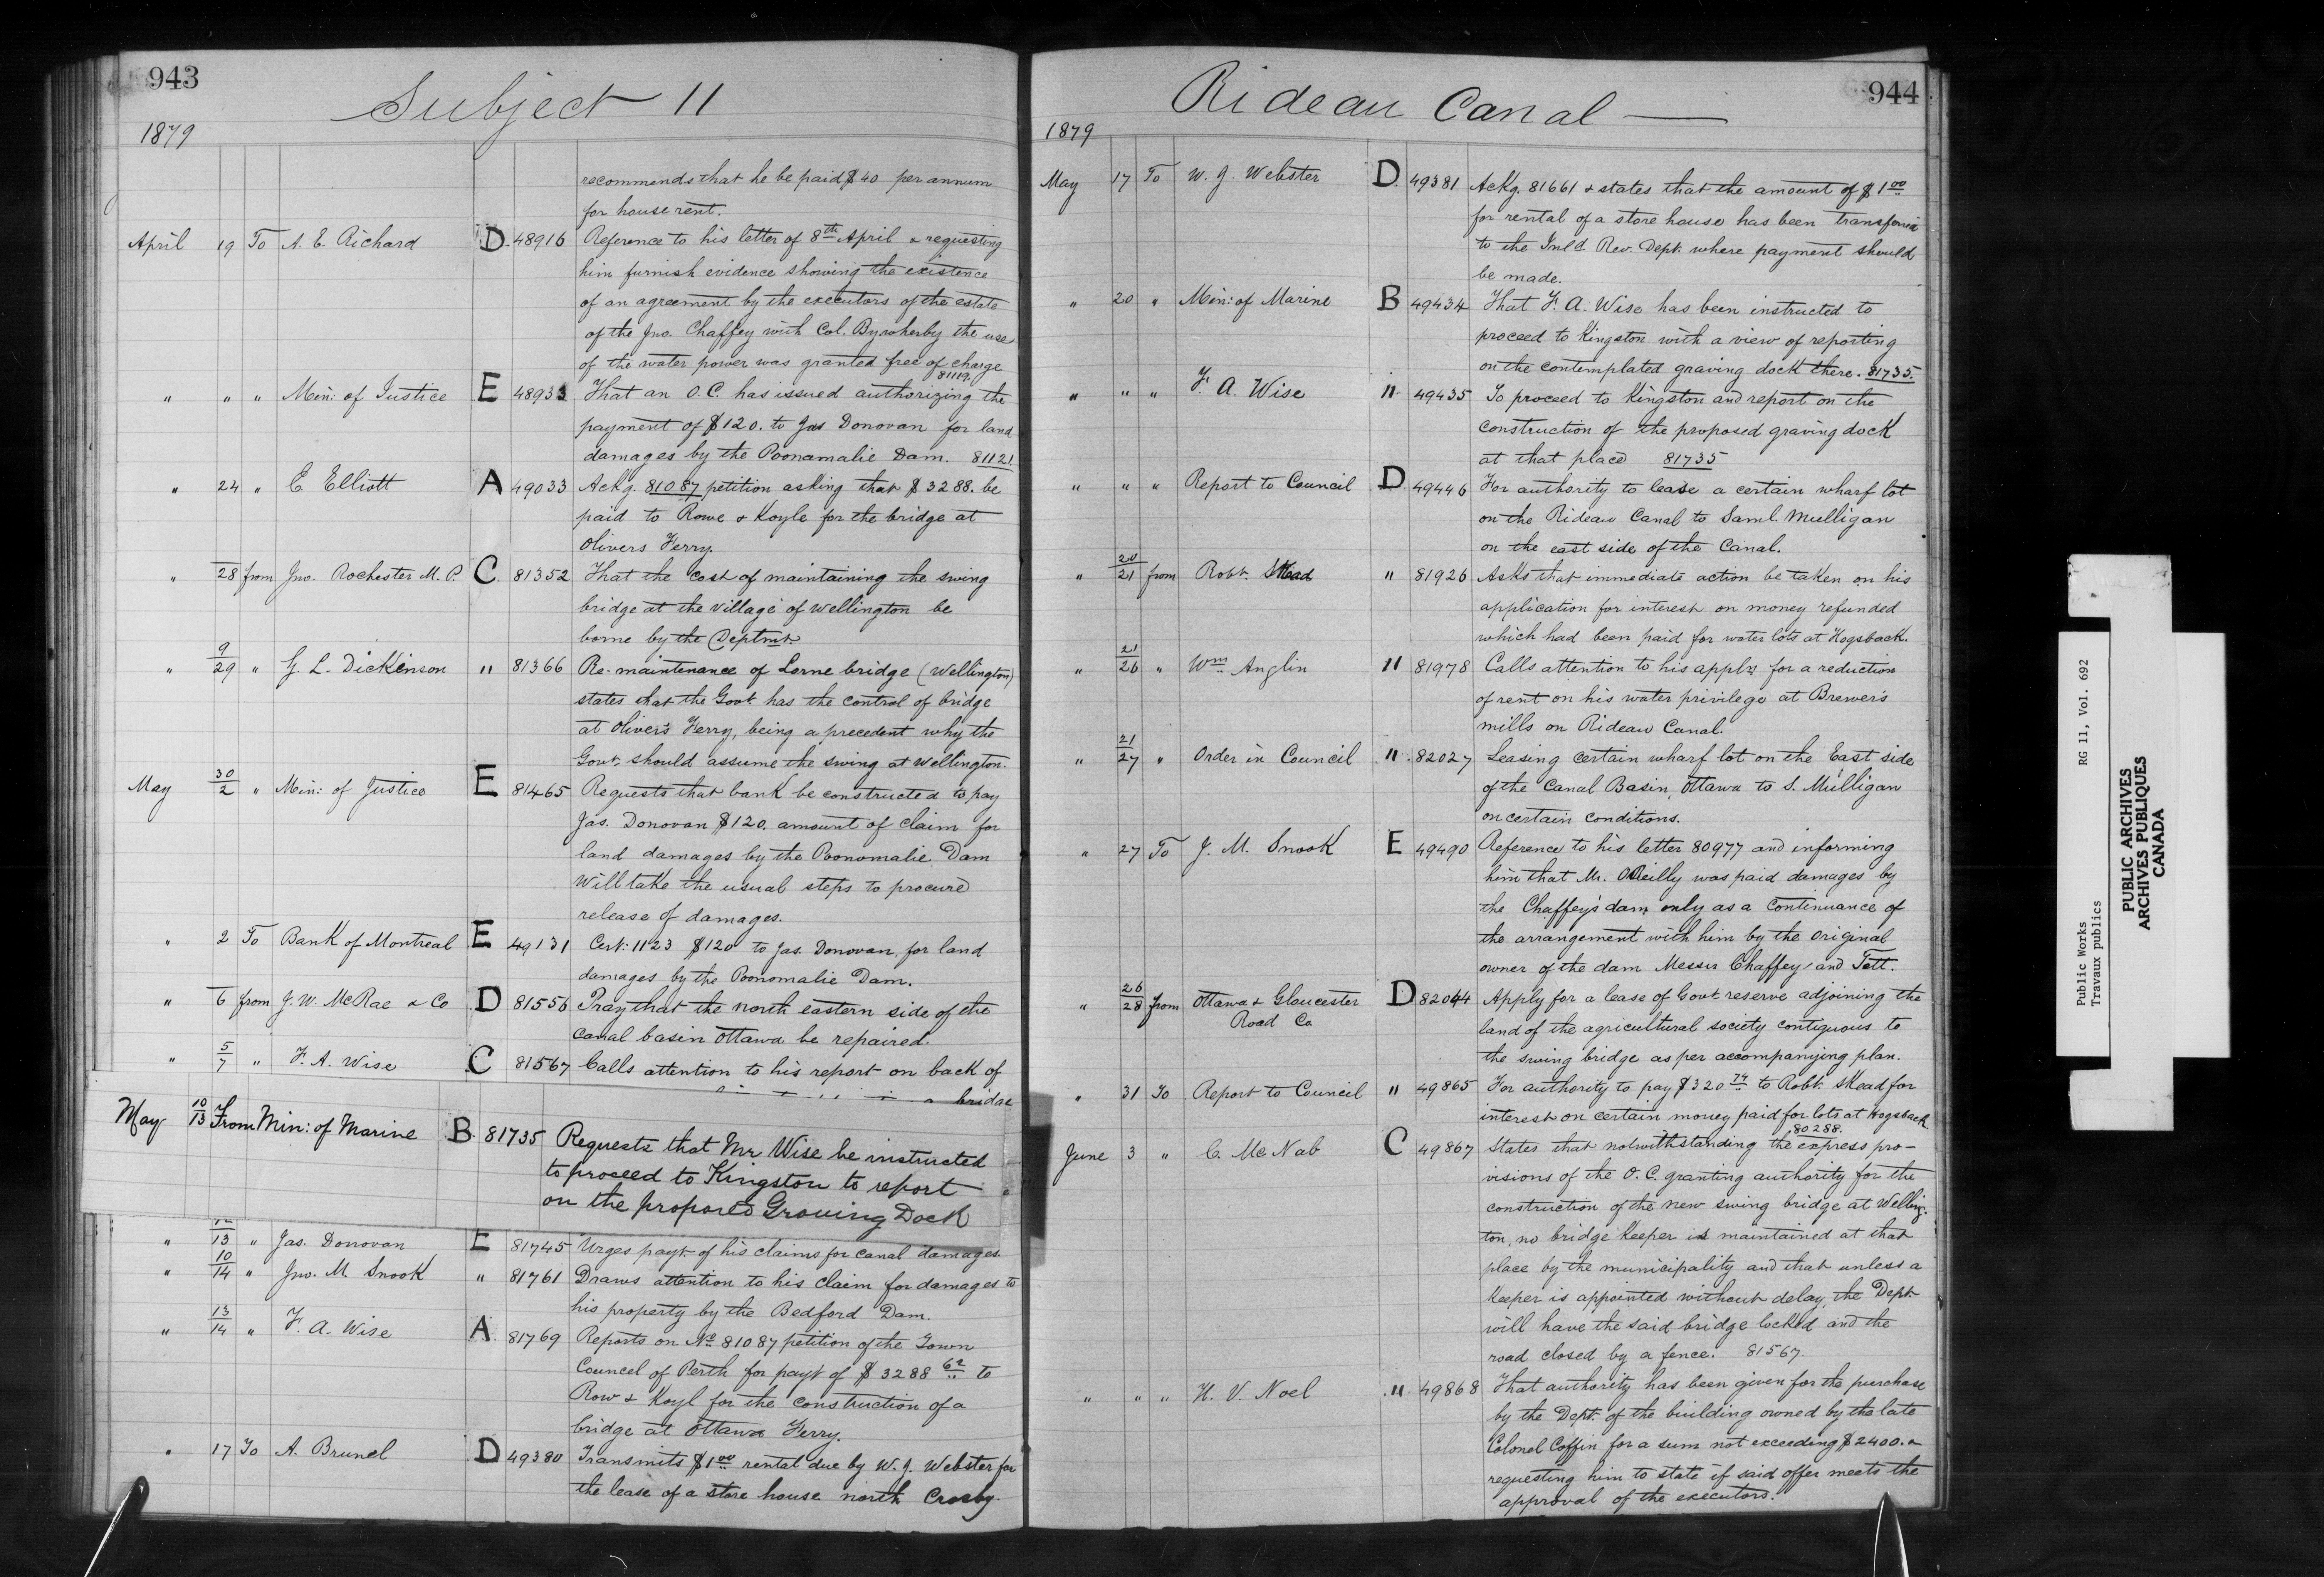 943
Subject 11
1879
recommends that he be paid $40 per annum
for house rent.
April 19 To A. E. Richard D 48916 Reference to his letter of 8th April & requesting
him furnish evidence showing the existence
of an agreement by the executors of the estate
of the Jno. Chaffey with Col. By wherby the use
of the water power was granted free of charge
81119.
" " " Min: of Justice E 48933 That an O.C. has issued authorizing the
payment of $120. to Jas Donovan for land
damages by the Poonamalie Dam. 81121.
" 24 " E Elliott A 49033 Ackg. 81087 petition asking that $3288. be
paid to Rowe & Koyle for the bridge at
Olivers Ferry.
" 28 from Jno. Rochester M.P. C 81352 That the cost of maintaining the swing
bridge at the village of Wellington be
borne by the Deptmt.
" 9/29 " G. L. Dickinson " 81366 Re-maintenance of Lorne bridge (Wellington)
states that the Govt. has the control of bridge
at Oliver's Ferry, being a precedent why the
Govt. should assume the swing at Wellington.
May 30/2 " Min: of Justice E 81465 Requests that bank be constructed to pay
Jas. Donovan $120. amount of claim for
land damages by the Poonomalie Dam
Will take the usual steps to procure
release of damages.
" 2 To Bank of Montreal E 49131 Cert: 1123 $120 to Jas. Donovan, for land
damages by the Poonomalie Dam.
" 6 from J. W. McRae & Co D 81556 Pray that the north eastern side of the
canal basin Ottawa be repaired.
" 5/7 " F. A. Wise C 81567 Calls attention to his report on back of
bridge
May 10/13 From Min: of Marine B 81735 Requests that Mr Wise be instructed
to proceed to Kingston to report
on the proposed Graving Dock
" 12/13 " Jas. Donovan E 81745 Urges payt. of his claims for canal damages.
" 10/14 " Jno. M. Snook " 81761 Draws attention to his claim for damages to
his property by the Bedford Dam.
" 13/14 " F. A. Wise A 81769 Reports on No 81087 petition of the Town
Councel of Perth for payt of $3288 62 to
Row & Koyl for the construction of a
bridge at Ottawa Ferry.
" 17 To A. Brunel D 49380 Transmits $1 00 rental due by W. J. Webster for
the lease of a store house north Crosby.
944
Rideau Canal —
1879
May 17 To W. J. Webster D 49381 Ackg. 81661 & states that the amount of $1 00
for rental of a store house has been
to the Inld. Rev. Dept. where payment should
be made.
" 20 " Min: of Marine B 49434 That F. A. Wise has been instructed to
proceed to Kingston with a view of reporting
on the contemplated graving dock there. 81735.
" " " F. A. Wise " 49435 To proceed to Kingston and report on the
construction of the proposed graving dock
at that place 81735
" " " Report to Council D 49446 For authority to lease a certain wharf lot
on the Rideau Canal to Saml. Mulligan
on the east side of the Canal.
" 20/21 from Robt. Skead " 81926 Asks that immediate action be taken on his
application for interest on money refunded
which had been paid for water lots at Hogsback.
" 21/26 " Wm Anglin " 81978 Calls attention to his appln for a reduction
of rent on his water privilege at Brewer's
mills on Rideau Canal.
" 21/27 " Order in Council " 82027 Leasing certain wharf lot on the East side
of the Canal Basin, Ottawa to S. Mulligan
on certain conditions.
" 27 To J. M. Snook E 49490 Reference to his letter 80977 and informing
him that Mr. O'Reilly was paid damages by
the Chaffey's dam only as a continuance of
the arrangement with him by the original
owner of the dam Messrs Chaffey and Tett.
" 26/28 from Ottawa & Gloucester D 82044 Apply for a lease of Govt. reserve adjoining the
Road Co land of the agricultural society contiguous to
the swing bridge as per accompanying plan.
" 31 To Report to Council " 49865 For authority to pay $320 74 to Robt. Skead for
interest on certain money paid for lots at Hogsback
80288.
June 3 " C. McNab C 49867 States that notwithstanding the express pro-
visions of the O.C. granting authority for the
construction of the new swing bridge at Welling-
ton, no bridge keeper is maintained at that
place by the municipality and that unless a
keeper is appointed without delay, the Dept.
will have the said bridge locked and the
road closed by a fence. 81567.
" " " H. V. Noel " 49868 That authority has been given for the purchase
by the Dept. of the building owned by the late
Colonel Coffin for a sum not exceeding $2400. &
requesting him to state if said offer meets the
approval of the executors.
Public Works
Travaux publics
RG 11, Vol. 692
PUBLIC ARCHIVES
ARCHIVES PUBLIQUES
CANADA